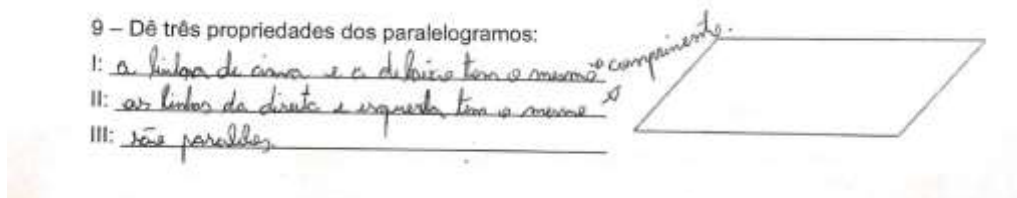 9 – Dê três propriedades dos paralelogramos:
I: a linha de cima e a debaixo tem o mesmo → comprimento.
II: as linhas da direita e esquerda tem o mesmo
III: são paralelas